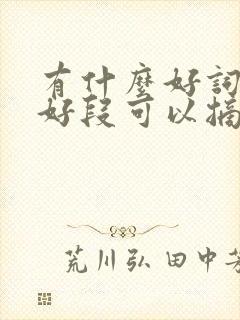 有什麼好詞
好段可以摘
荒川弘 田中芳